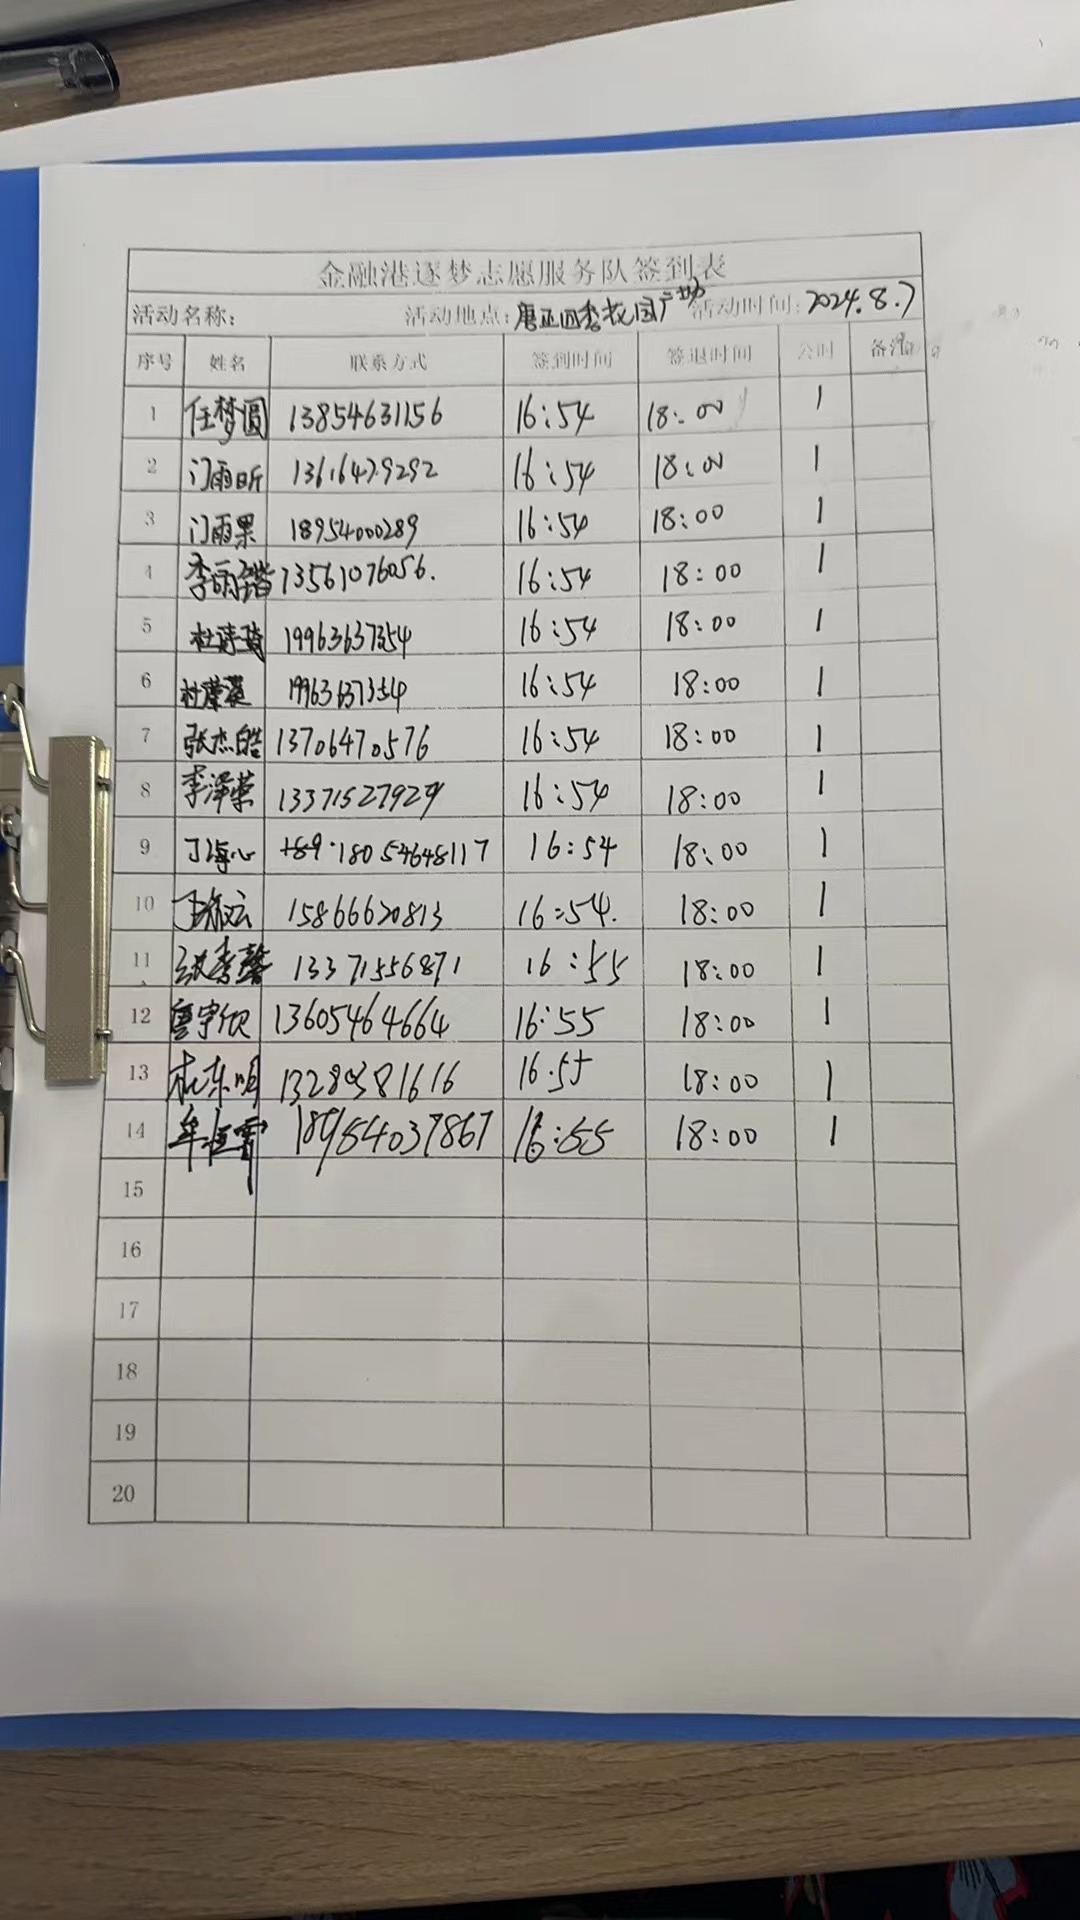 金融港逐梦志愿服务队签到表
活动名称: 活动地点:唐正四季花园广场 活动时间:2024.8.7
序号 姓名 联系方式 签到时间 签退时间 公时 备注
1 任梦圆 13854631156 16:54 18:00 1
2 门雨昕 13616479292 16:54 18:00 1
3 门雨果 18954000289 16:54 18:00 1
4 李雨锴 13561076056. 16:54 18:00 1
5 杜诗琦 19963637354 16:54 18:00 1
6 杜 19963637354 16:54 18:00 1
7 张杰皓 13706470576 16:54 18:00 1
8 李泽荣 13371527929 16:54 18:00 1
9 丁海心 18054648117 16:54 18:00 1
10 15866620813 16:54. 18:00 1
11 馨 13371556871 16:55 18:00 1
12 唐宇欣 13605464664 16:55 18:00 1
13 16.55 18:00 1
14 牟恒霄 18954037867 16:55 18:00 1
15
16
17
18
19
20